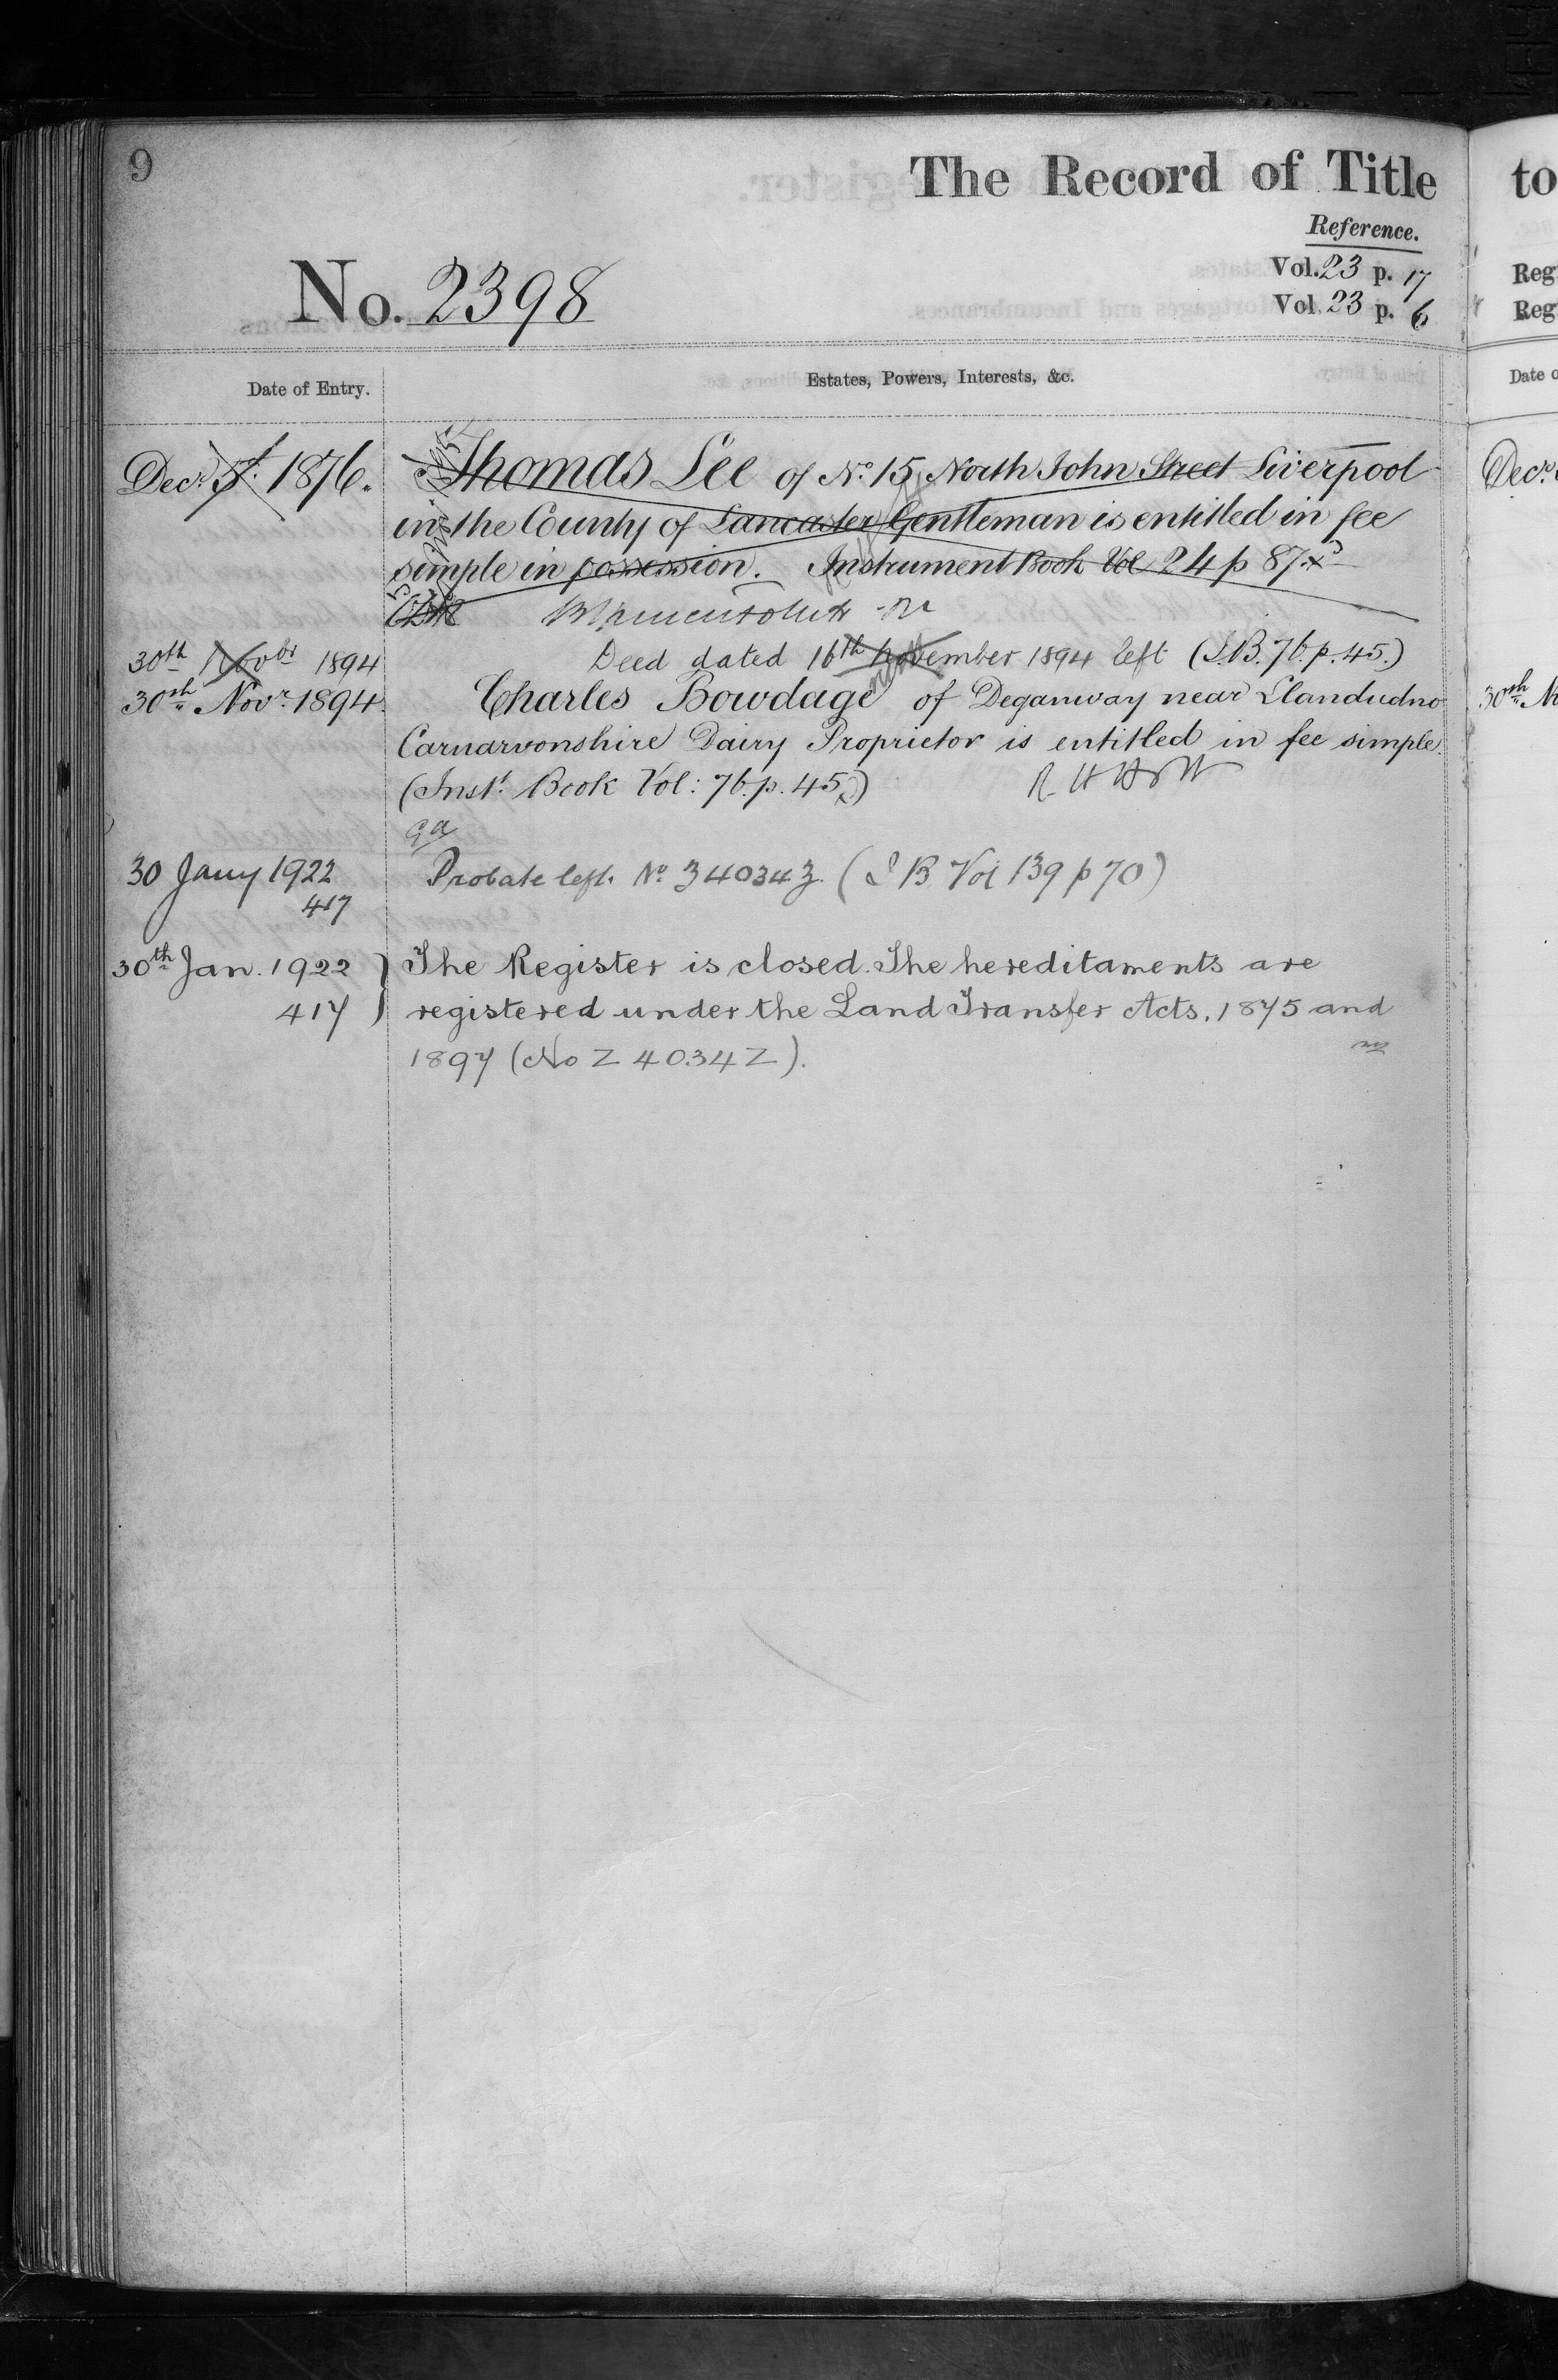 9
The Record of Title
Reference.
No. 2398
Vol. 23 p. 17
Vol. 23 p. 6
Date of Entry.
Estates, Powers, Interests, &c.
Decr. 1876. Thomas Lee of No. 15 North John Street Liverpool
in the County of Lancaster Gentleman is entitled in fee
simple in possession. Instrument Book Vol 24 p 87.
30th Novbr 1894 Deed dated 16th November 1894 left (I.B. 76. p. 45.)
30th Novr. 1894. Charles Bowdage of Deganway near Llandudno
Carnarvonshire Dairy Proprietor is entitled in fee simple.
(Inst. Book Vol: 76. p. 45.)
30 Jany 1922 Probate left. No. Z4034Z. (I B Vol 139 p 70)
417
30th Jan. 1922 } The Register is closed. The hereditaments are
417 registered under the Land Transfer Acts, 1875 and
1897 (No Z 4034Z).
to
Reg
Reg
Date o
Decr.
30th No